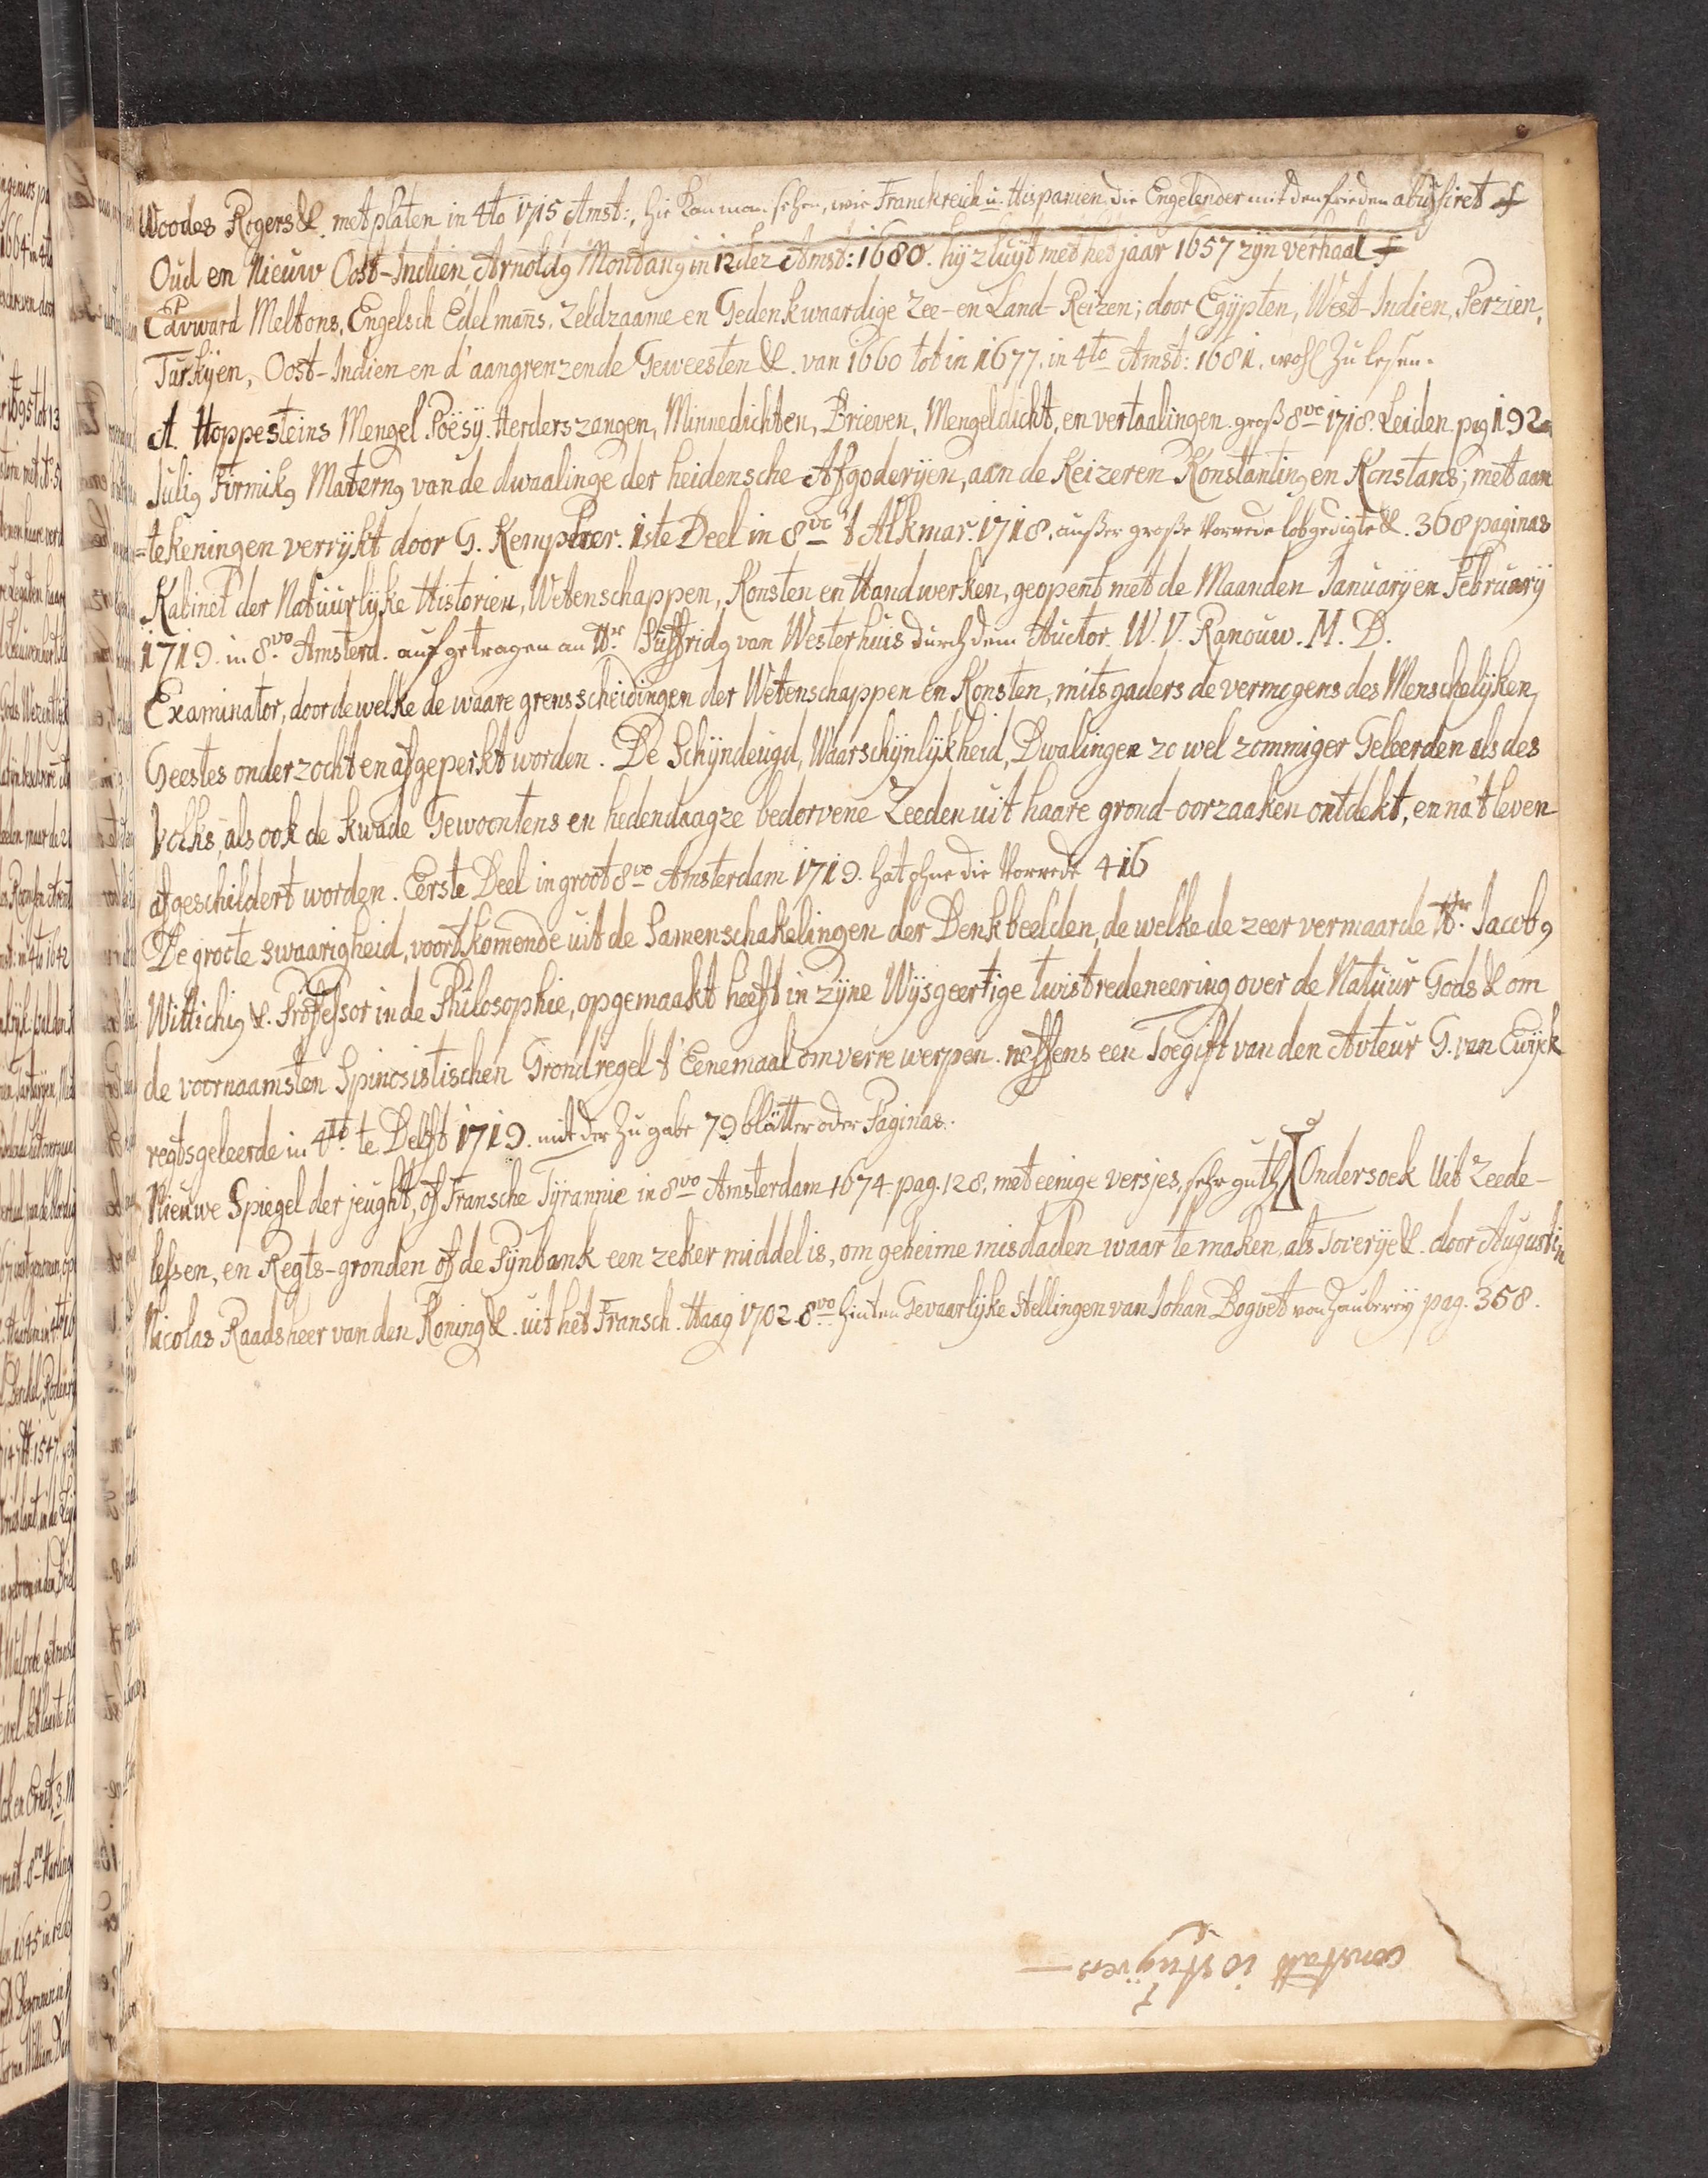 Woodes Rogers &. met platen in 4to 1715 Amst:, hie kan man sehen, wie Franckreich u. Hispanien die Engelender mit den frieden abusiret
Oud en Nieuw Oost-Indien, Arnoldg Montang in 12dez Amst: 1680. hij zluijt met het jaar 1657 zijn verhaal
Eduward Meltons, Engelsch Edelmans, Zeldzaame en Gedenkwaardige Zee- en Land-Reizen; door Egypten, West-Indien, Perzien,
Turkijen, Oost-Indien en d'aangrenzende Geweesten &. van 1660 tot in 1677. in 4to Amst: 1681. wohl zu lesen.
A. Hoppesteins Mengel Poësij. Herderszangen, Minnedichten, Brieven, Mengeldicht, en vertaalingen. groß 8vo 1718. Leiden. pag 192
Julig Firmikg Materng van de dwaalinge der heidensche Afgoderijen, aan de Keizeren Konstanting en Konstans; met aan
=tekeningen verrijkt door G. Kempher. 1ste Deel in 8vo 't Alkmar. 1718. außer große Vorrede lobgedigte &. 368 paginas
Kabinet der Natuurlijke Historien, Wetenschappen, Konsten en Handwerken, geopent met de Maanden Januarij en Februarij
1719. in 8vo Amsterd. aufgetragen an Hr. Suffridg van Westerhuis durch dem Auctor. W. V. Ranouw. M. D.
Examinator, door de welke de waare grensscheidingen der Wetenschappen en Konsten, mitsgaders de vermogens des Menschelijken
Geestes onderzocht en afgeperkt worden. De Schijndeugd, Waarschijnlijkheid, Dwalingen zo wel zommiger Geleerden als des
Volks, als ook de kwade Gewoontens en hedendaagze bedorvene Zeeden uit haare grond-oorzaaken ontdekt, en na't leven
afgeschildert worden. Eerste Deel in groot 8vo Amsterdam 1719. hat ohne die Vorrede 416
De groote swaarigheid, voortkomende uit de Samenschakelingen der Denkbeelden, de welke de zeer vermaarde Hr. Jacobg
Wittichig &. Professor in de Philosophie, opgemaakt heeft in zijne Wijsgeertige twistredeneering over de Natuur Gods & om
de voornaamsten Spinosistischen Grondregel t'Eenemaal omverre werpen. neffens een Toegift van den Auteur G. van Ewijck
regtsgeleerde in 4to te Delft 1719. mit der Zugabe 79 blätter oder Paginas.
Nieuwe Spiegel der jeught, of Fransche Tyrannie in 8vo Amsterdam 1674. pag. 128. met eenige versjes, sehr guth Ondersoek Uit Zeede-
lessen, en Regts-gronden of de Pijnbank een zeker middel is, om geheime misdaden waar te maken, als Toverije &. door Augustin
Nicolas Raadsheer van den Koning &. uit het Fransch. Haag 1702. 8vo hinten Gevaarlijke Stellingen van Johan Bogvet von Zauberey pag. 358.
constatt 10 stuijvers